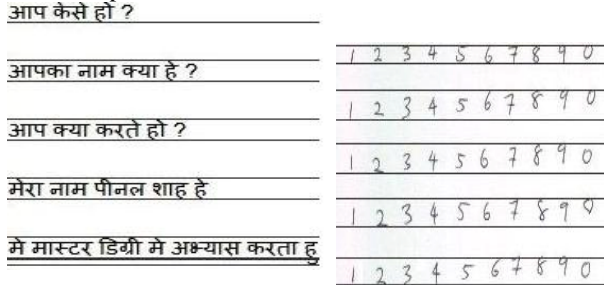 आप केसे हो ?
आपका नाम क्या हे ?
आप क्या करते हो ?
मेरा नाम पीनल शाह हे
मे मास्टर डिग्री मे अभ्यास करता हु
1 2 3 4 5 6 7 8 9 0
1 2 3 4 5 6 7 8 9 0
1 2 3 4 5 6 7 8 9 0
1 2 3 4 5 6 7 8 9 0
1 2 3 4 5 6 7 8 9 0